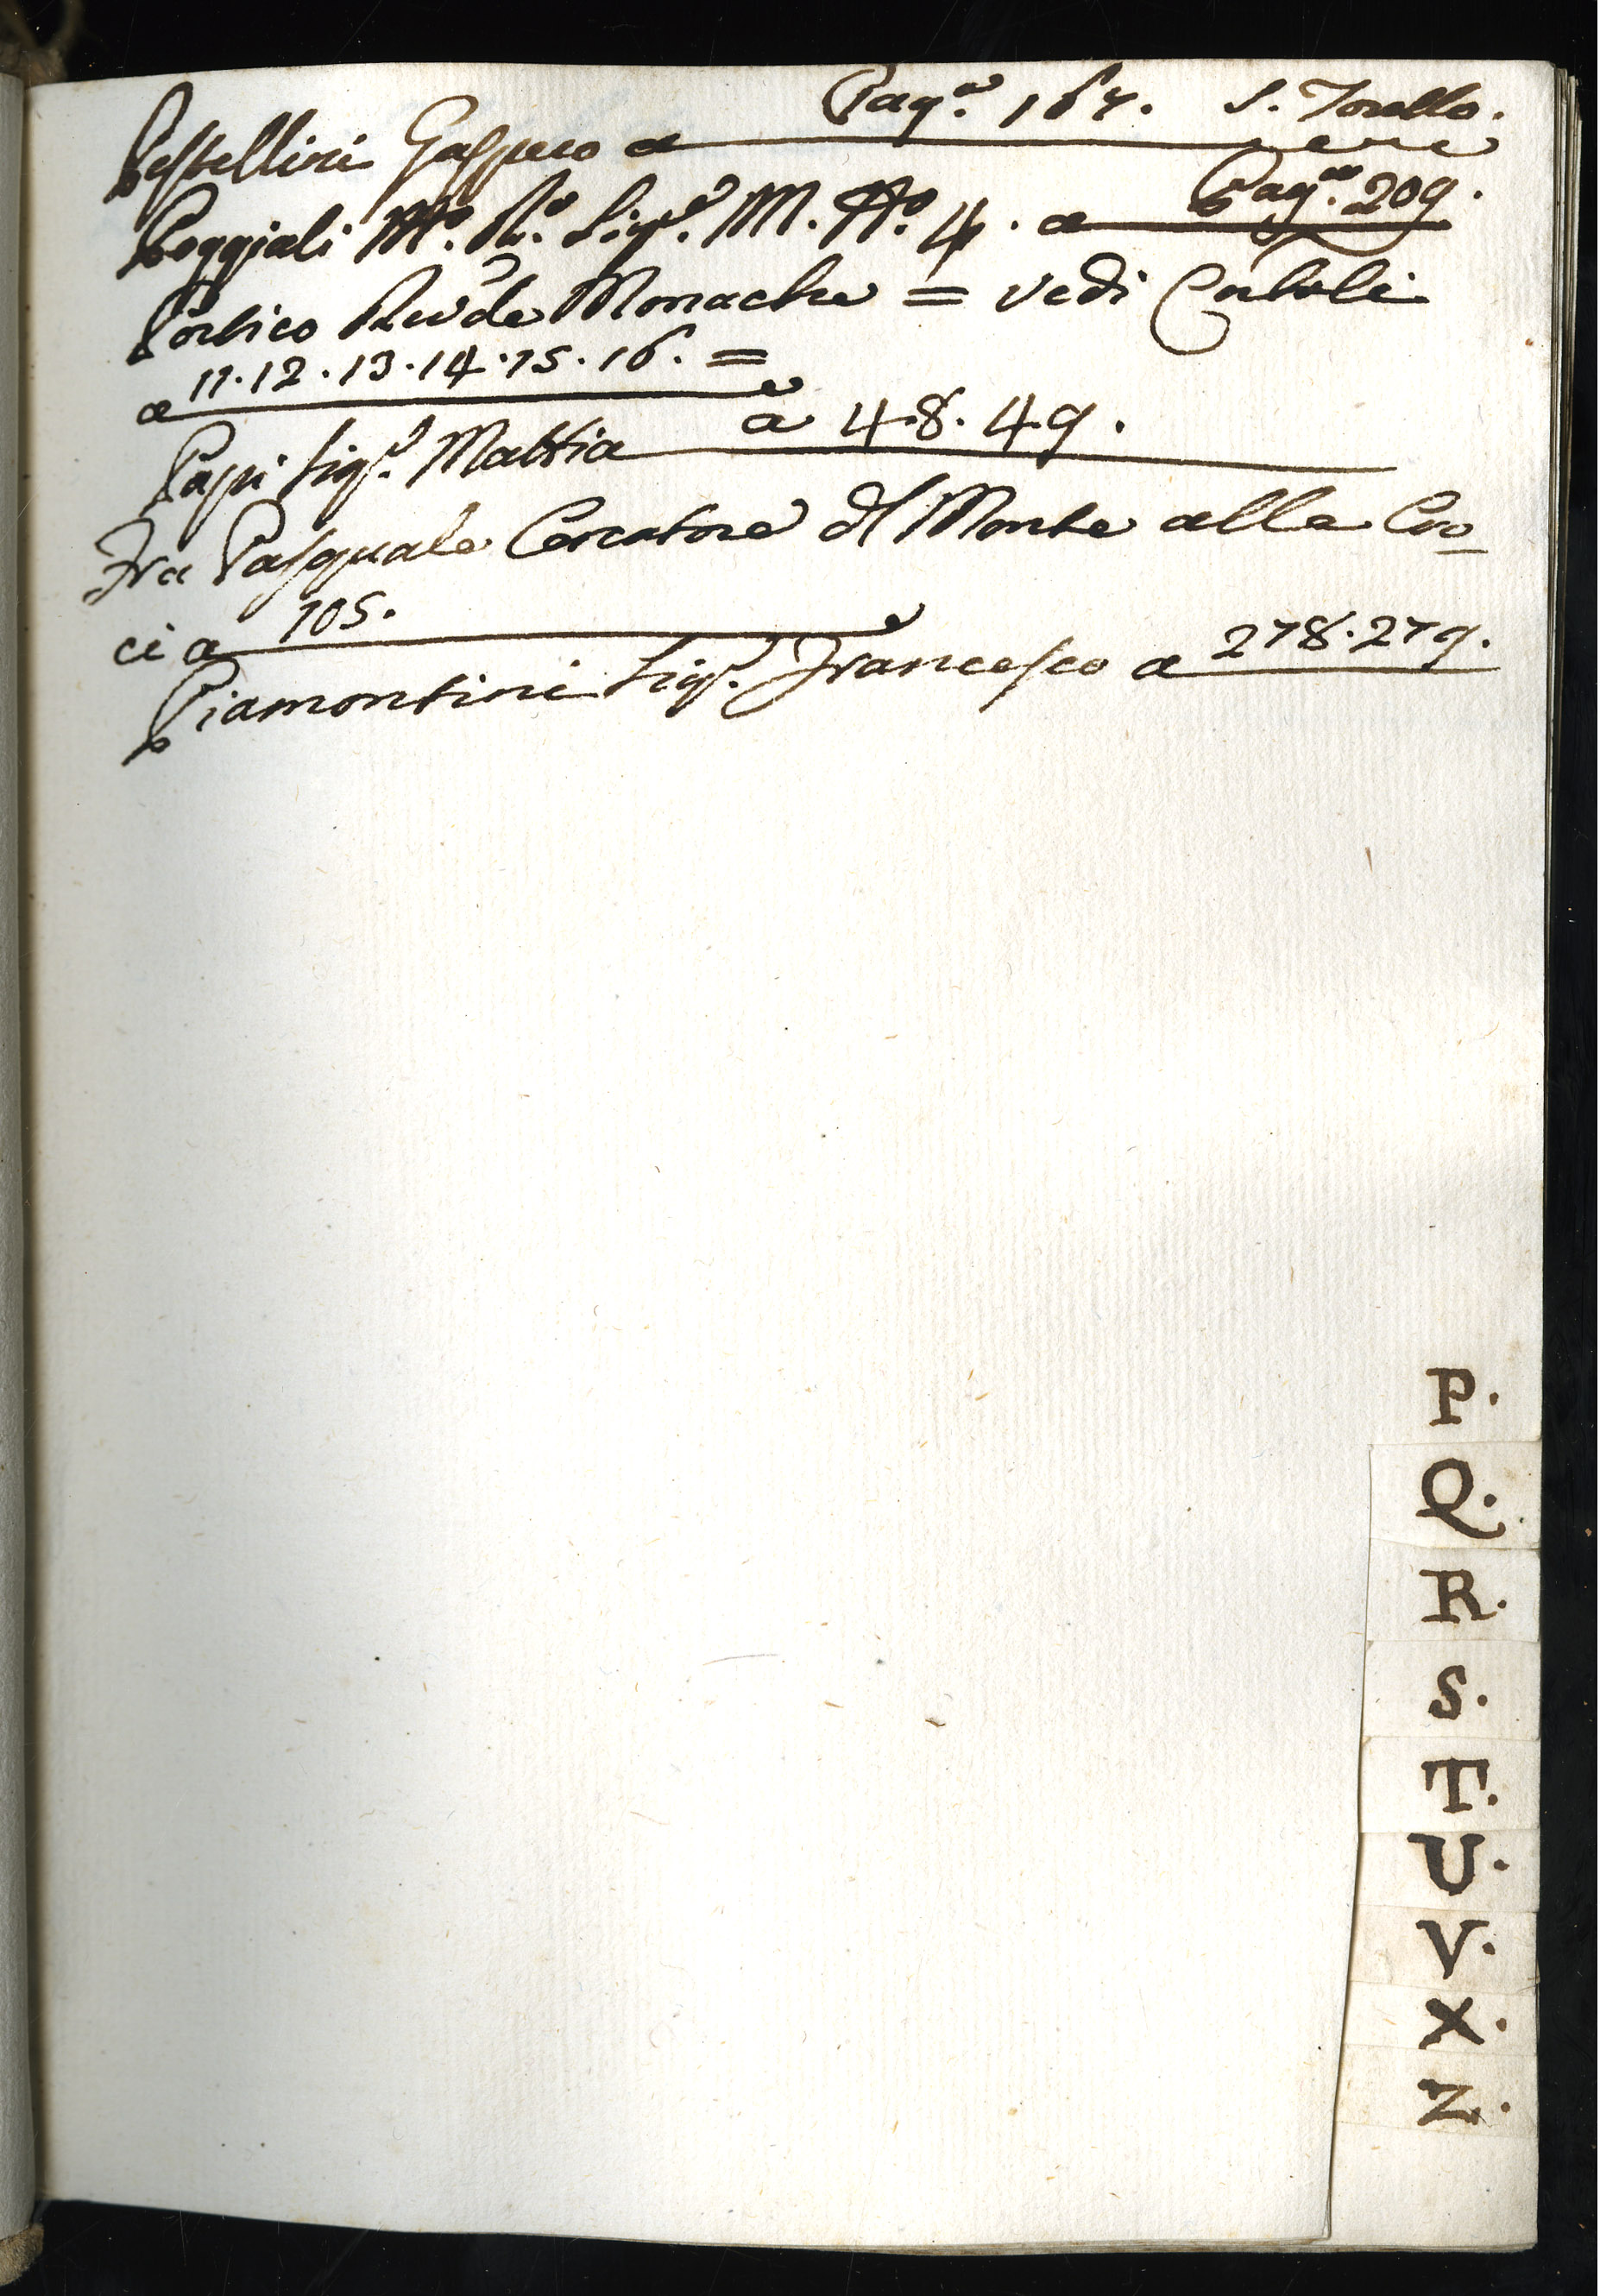 Pestellini Gaspero a Pag.ª 167. S. Torello.
Poggiali M.º R.º Sig.º M. A.º 4. a Pag.ª 209.
Portico Rev.de Monache = vedi Cartoli
a 11. 12. 13. 14. 15. 16. =
Papi Sig.º Mattia a 48. 49.
Fra Pasquale Cercatore dl Monte alle Cro
ci a 105.
Piamontini Sig.º Francesco a 278. 279.
P.
Q.
R.
S.
T.
U.
V.
X.
Z.